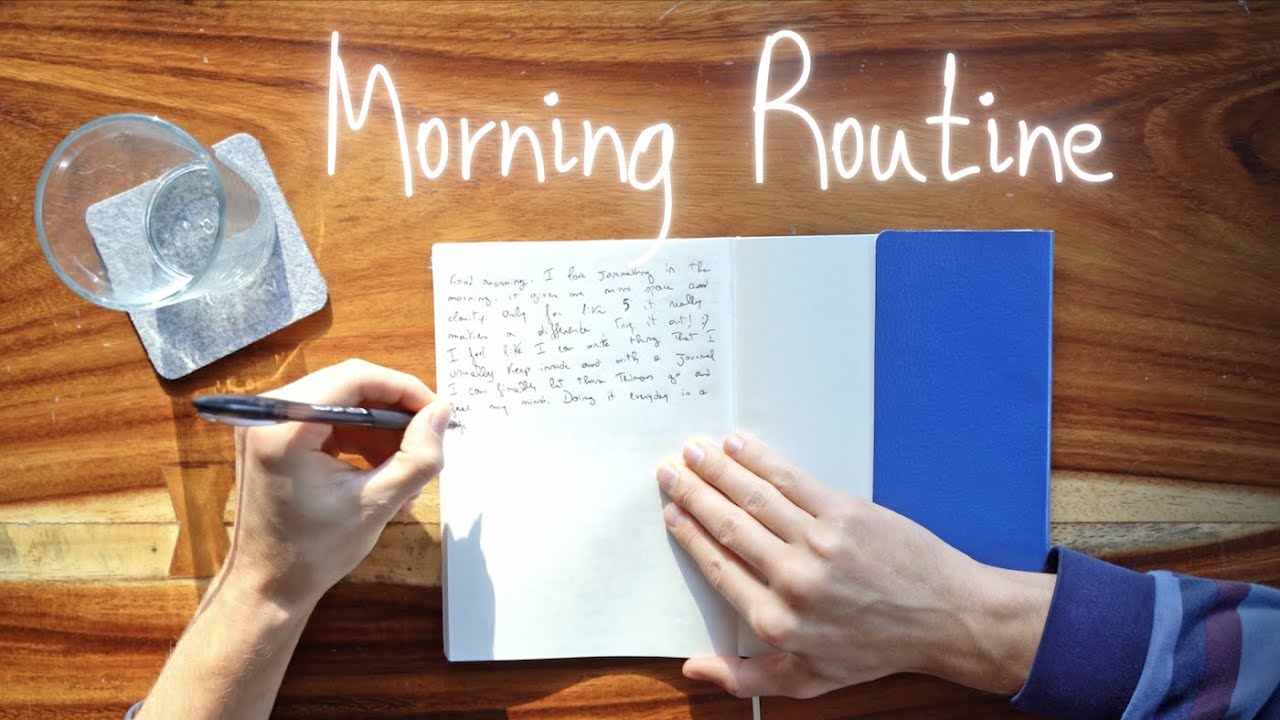 Morning Routine
Good morning. I love journaling in the
morning. it gives me mind space and
clarity. Only for like 5 it really
makes a difference. Try it out! :)
I feel like I can write thing that I
usually keep inside and with a journal
I can finally let those go and
free my mind. Doing it everyday is a